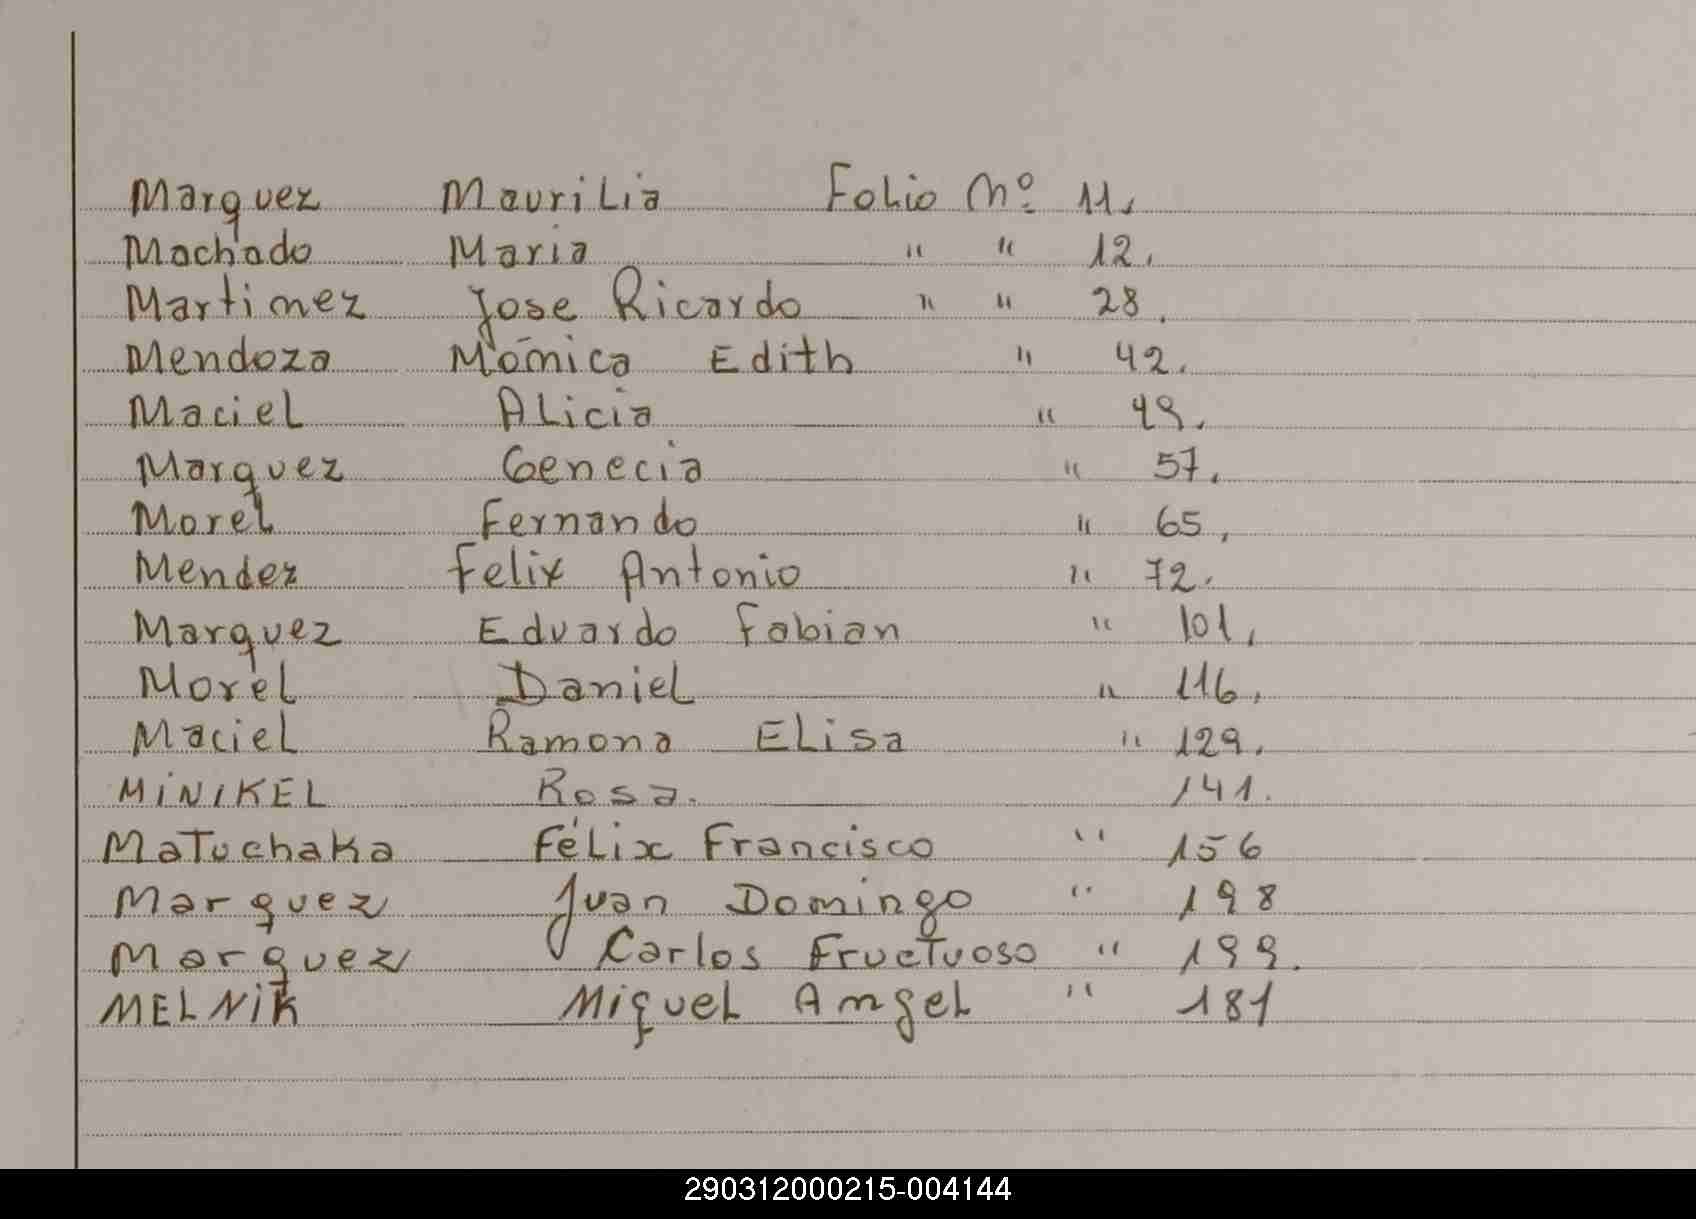 Marquez Maurilia Folio Nº 11.
Machado Maria " " 12.
Martinez Jose Ricardo " " 28.
Mendoza Mónica Edith " 42.
Maciel Alicia " 49.
Marquez Genecia " 57.
Morel Fernando " 65.
Mendez Felix Antonio " 72.
Marquez Eduardo Fabian " 101.
Morel Daniel " 116.
Maciel Ramona Elisa " 129.
MINIKEL Rosa. 141.
Matuchaka Félix Francisco " 156
Marquez Juan Domingo " 198
Marquez Carlos Fructuoso " 199.
MELNIK Miguel Angel " 181
290312000215-004144